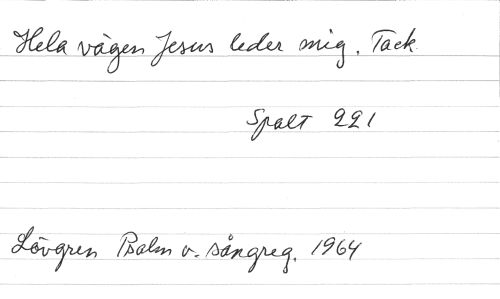 Hela vägen Jesus leder mig. Tack
Spalt 221
Lövgren Psalm o. sångreg. 1964